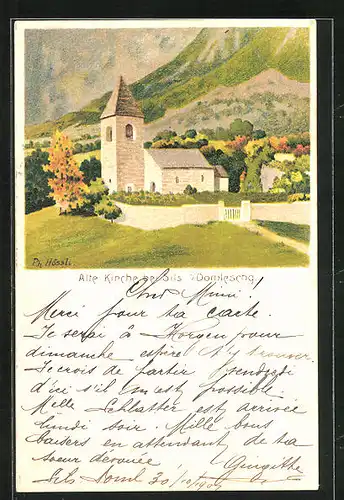 Ph. Hössli
Alte Kirche bei Sils i/Domleschg.
Mimi!
Merci pour ta carte.
Je serai à Horgen pour
dimanche espère t'y trouver.
Je crois de partir vendredi
d'ici s'il m'est possible.
Mlle Schlatter est arrivée
lundi soir. Mille bons
baisers en attendant de ta
soeur dévouée
Sils 30